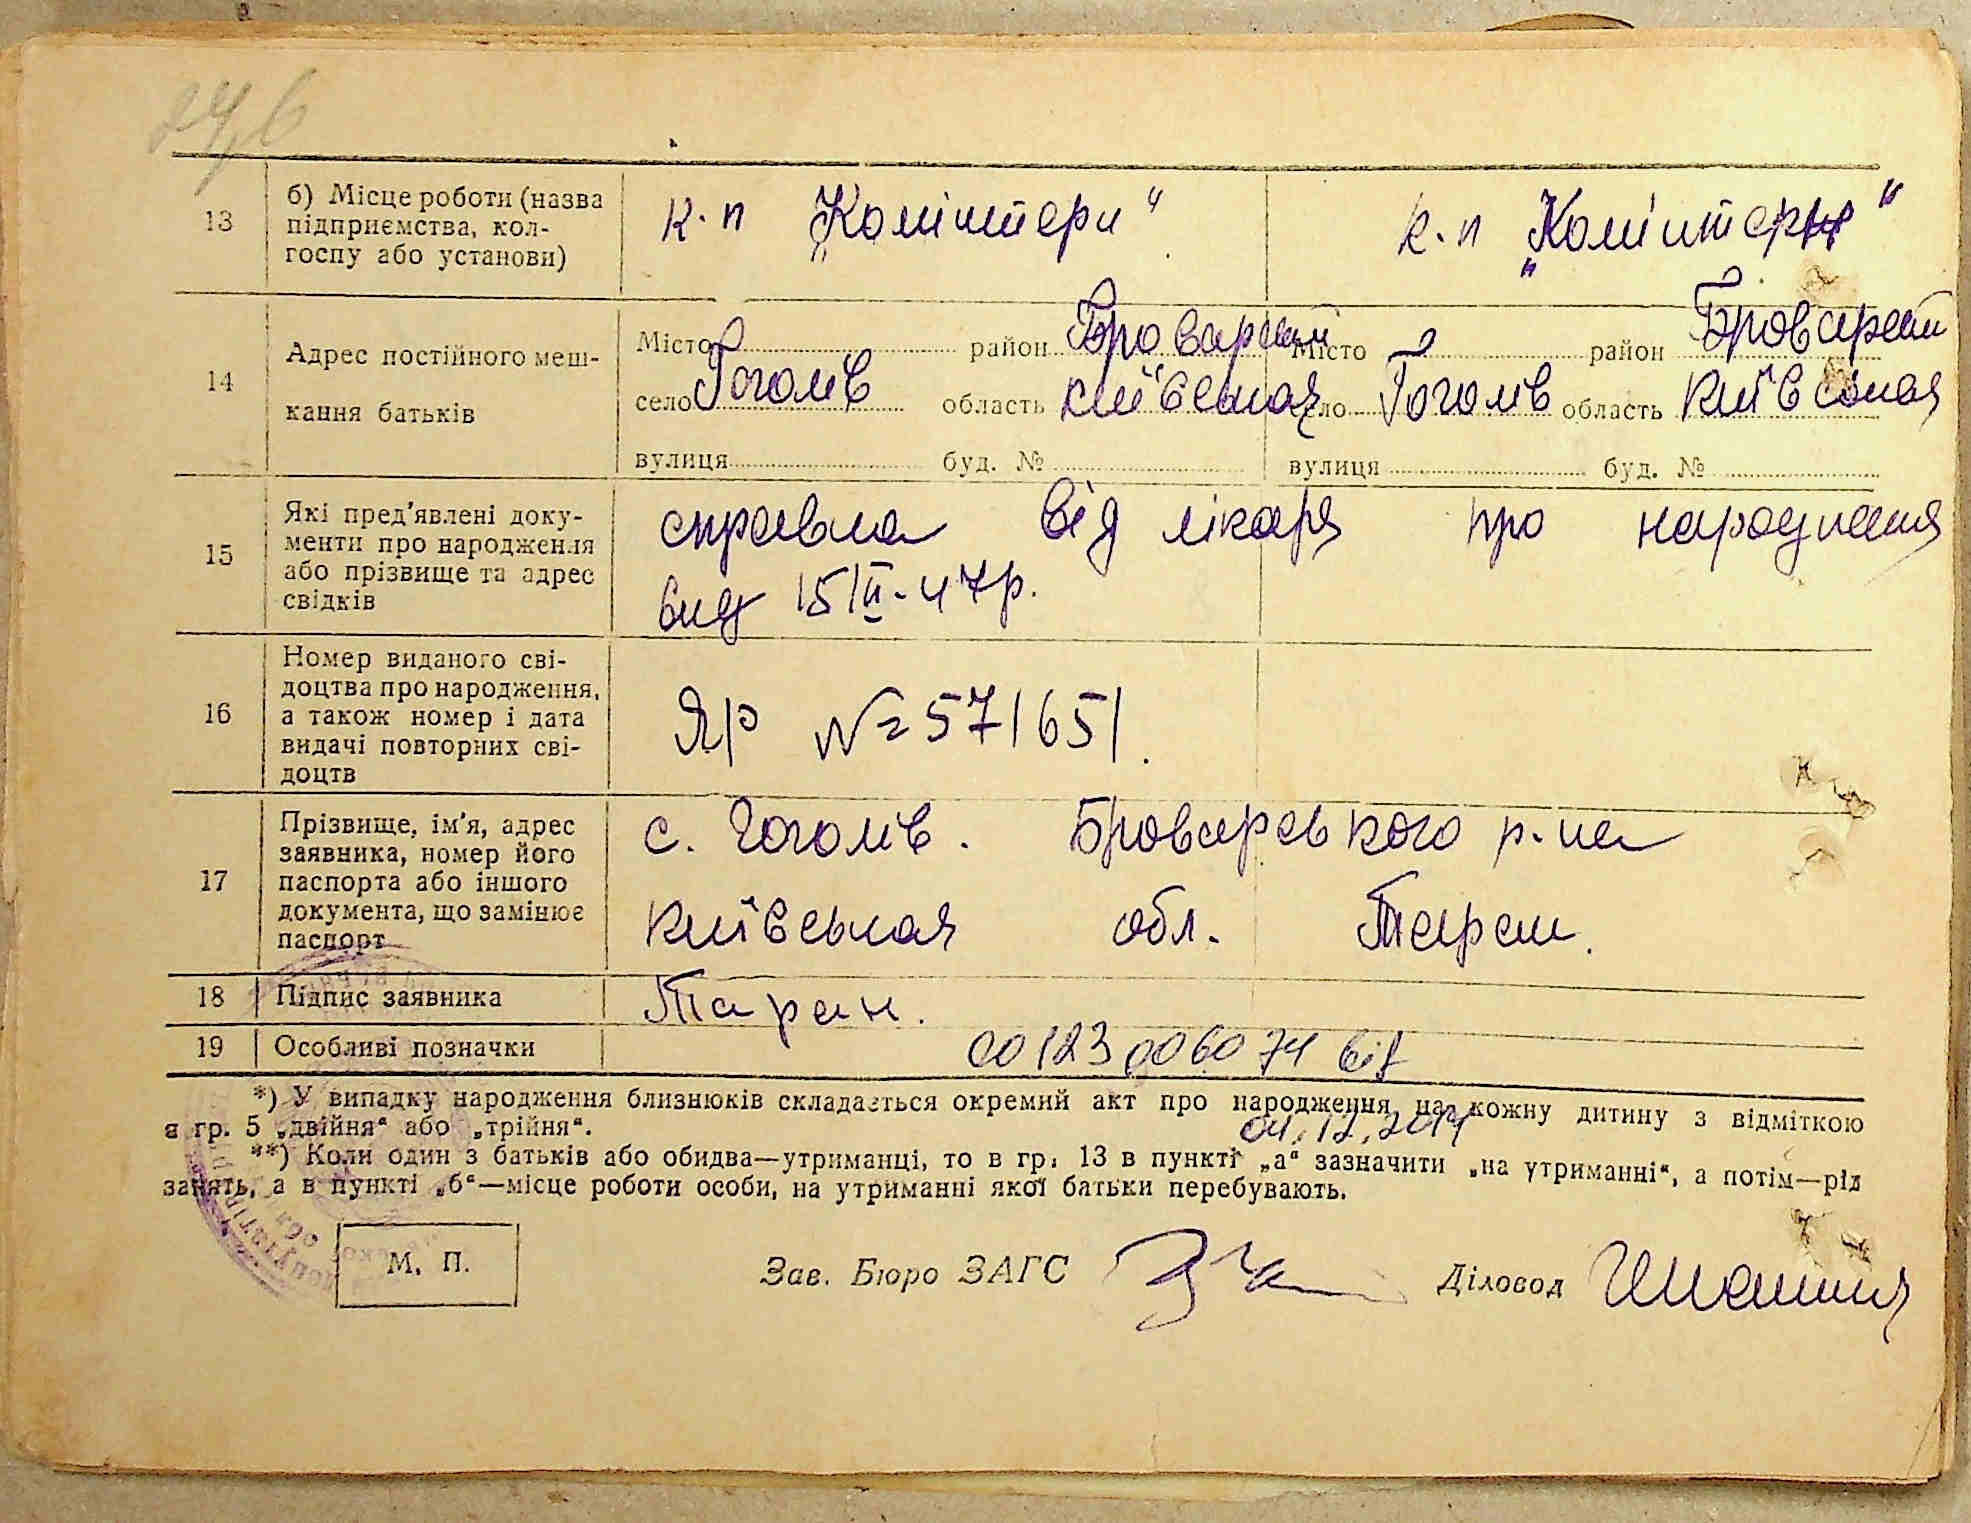 13 б) Місце роботи (назва підприємства, колгоспу або установи) к.п „Комінтерн“ к.п „Комінтерн“
14 Адрес постійного мешкання батьків
Місто район Броварський Місто район Броварський
село Гоголів область київська село Гоголів область київська
вулиця буд. № вулиця буд. №
15 Які пред'явлені документи про народження або прізвище та адрес свідків
справка від лікаря про народження
вид 15/II-47р.
16 Номер виданого свідоцтва про народження, а також номер і дата видачі повторних свідоцтв
ЯР № 571651.
17 Прізвище, ім'я, адрес заявника, номер його паспорта або іншого документа, що замінює паспорт
с. Гоголів. Броварського р-на
київська обл. Таран.
18 Підпис заявника Таран.
19 Особливі позначки 00123006074 від
04.12.2014
*) У випадку народження близнюків складається окремий акт про народження на кожну дитину з відміткою
в гр. 5 „двійня“ або „трійня“.
**) Коли один з батьків або обидва—утриманці, то в гр. 13 в пункті „а“ зазначити „на утриманні“, а потім—рід
занять, а в пункті „б“—місце роботи особи, на утриманні якої батьки перебувають.
М. П. Зав. Бюро ЗАГС Діловод